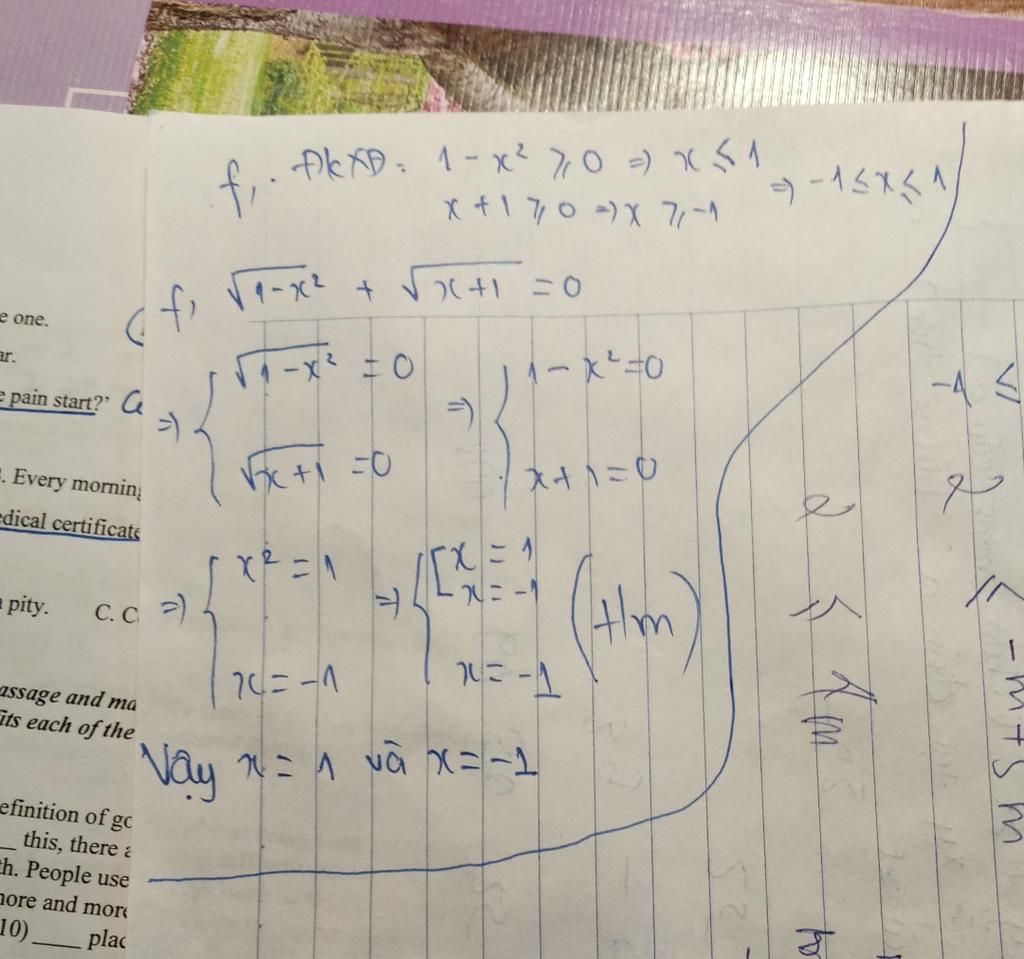 f, . ĐKXĐ: 1 - x² ≥ 0 => x ≤ 1 => -1 ≤ x ≤ 1
x + 1 ≥ 0 => x ≥ -1
f, √(1-x²) + √(x+1) = 0
=> { √(1-x²) = 0 => { 1 - x² = 0
√(x+1) = 0 x + 1 = 0
=> { x² = 1 => { [ x = 1
x = -1 (t/m)
x = -1 x = -1
Vậy x = 1 và x = -1
e one.
ar.
e pain start?'
. Every morning
edical certificate
pity. C. C
assage and ma
fits each of the
efinition of go
this, there a
th. People use
nore and more
10) ____ plac
-1 ≤